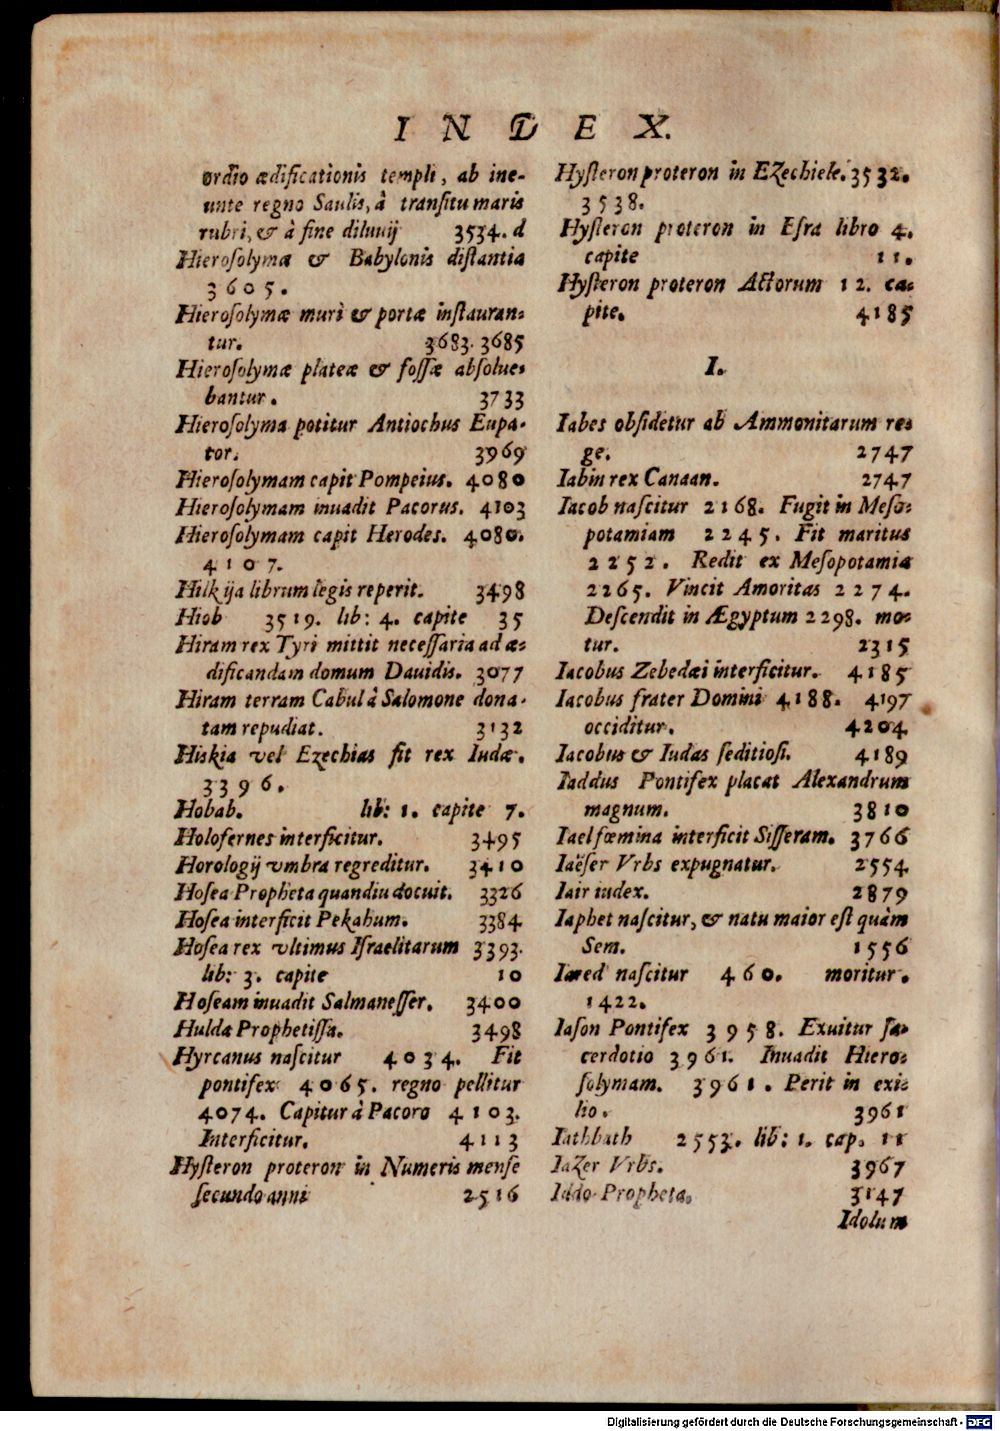 INDEX.
ordio ædificationis templi, ab ine-
unte regno Saulis, à transitu maris
rubri, & à fine diluuij 3534. d
Hierosolymæ & Babylonis distantia
3605.
Hierosolymæ muri & portæ instauran-
tur. 3683. 3685
Hierosolymæ plateæ & fossæ absolue-
bantur. 3733
Hierosolyma potitur Antiochus Eupa-
tor. 3969
Hierosolymam capit Pompeius. 4080
Hierosolymam inuadit Pacorus. 4103
Hierosolymam capit Herodes. 4080.
4107.
Hilkija librum legis reperit. 3498
Hiob 3519. lib: 4. capite 35
Hiram rex Tyri mittit necessaria ad æ-
dificandam domum Dauidis. 3077
Hiram terram Cabul à Salomone dona-
tam repudiat. 3132
Hiskia vel Ezechias fit rex Iudæ.
3396.
Hobab. lib: 1. capite 7.
Holofernes interficitur. 3495
Horologij vmbra regreditur. 3410
Hosea Propheta quandiu docuit. 3326
Hosea interficit Pekahum. 3384
Hosea rex vltimus Israelitarum 3393.
lib: 3. capite 10
Hoseam inuadit Salmanesser. 3400
Hulda Prophetissa. 3498
Hyrcanus nascitur 4034. Fit
pontifex 4065. regno pellitur
4074. Capitur à Pacoro 4103.
Interficitur. 4113
Hysteron proteron in Numeris mense
secundo anni 2516
Hysteron proteron in Ezechiele. 3532.
3538.
Hysteron proteron in Esra libro 4.
capite 11.
Hysteron proteron Actorum 12. ca-
pite. 4185
I.
Iabes obsidetur ab Ammonitarum re-
ge. 2747
Iabin rex Canaan. 2747
Iacob nascitur 2168. Fugit in Meso-
potamiam 2245. Fit maritus
2252. Redit ex Mesopotamia
2265. Vincit Amoritas 2274.
Descendit in Ægyptum 2298. mo-
tur. 2315
Iacobus Zebedæi interficitur. 4185
Iacobus frater Domini 4188. 4197
occiditur. 4204
Iacobus & Iudas seditiosi. 4189
Iaddus Pontifex placat Alexandrum
magnum. 3810
Iael fœmina interficit Sisseram. 3766
Iaëser Vrbs expugnatur. 2554
Iair iudex. 2879
Iaphet nascitur, & natu maior est quàm
Sem. 1556
Iared nascitur 460. moritur.
1422.
Iason Pontifex 3958. Exuitur sa-
cerdotio 3961. Inuadit Hiero-
solymam. 3961. Perit in exi-
lio. 3961
Iathbath 2553. lib: 1. cap. 11
Iazer Vrbs. 3967
Iddo Propheta. 3147
Idolum
Digitalisierung gefördert durch die Deutsche Forschungsgemeinschaft - DFG